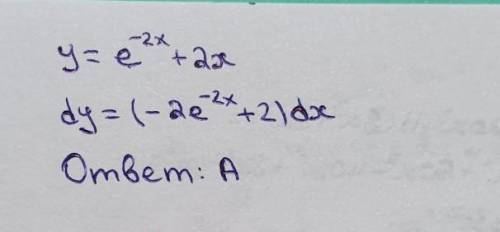 y = e^{-2x} + 2x
dy = (-2e^{-2x} + 2) dx
Ответ: А